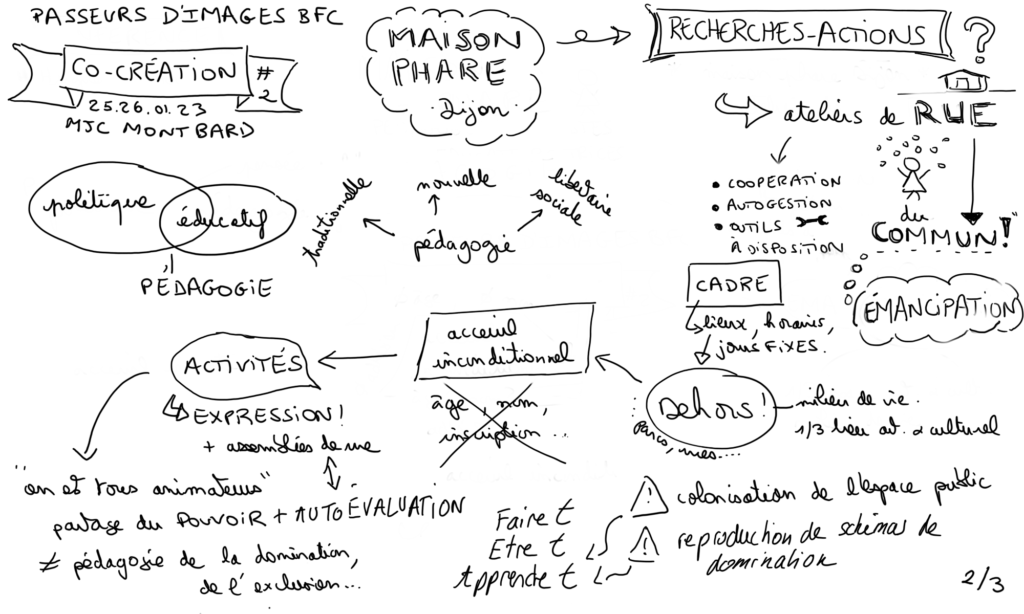 PASSEURS D'IMAGES BFC
CO-CRÉATION
#2
25.26.01.23
MJC MONTBARD
MAISON
PHARE
Dijon
RECHERCHES-ACTIONS
?
ateliers de RUE
• COOPERATION
• AUTOGESTION
• OUTILS
À DISPOSITION
du
COMMUN!"
ÉMANCIPATION
politique
éducatif
PÉDAGOGIE
traditionnelle
nouvelle
libertaire
sociale
pédagogie
CADRE
lieux, horaires,
jours FIXES.
Dehors!
Parcs, rues....
milieu de vie.
1/3 lieu art. & culturel
acceuil
inconditionnel
âge, nom,
inscription...
ACTIVITÉS
EXPRESSION!
+ assemblées de rue
"on est tous animateurs"
partage du POUVOIR + AUTOÉVALUATION
≠ pédagogie de la domination,
de l'exclusion...
Faire t
Etre t
Apprendre t
! colonisation de l'espace public
! reproduction de schémas de
domination
2/3